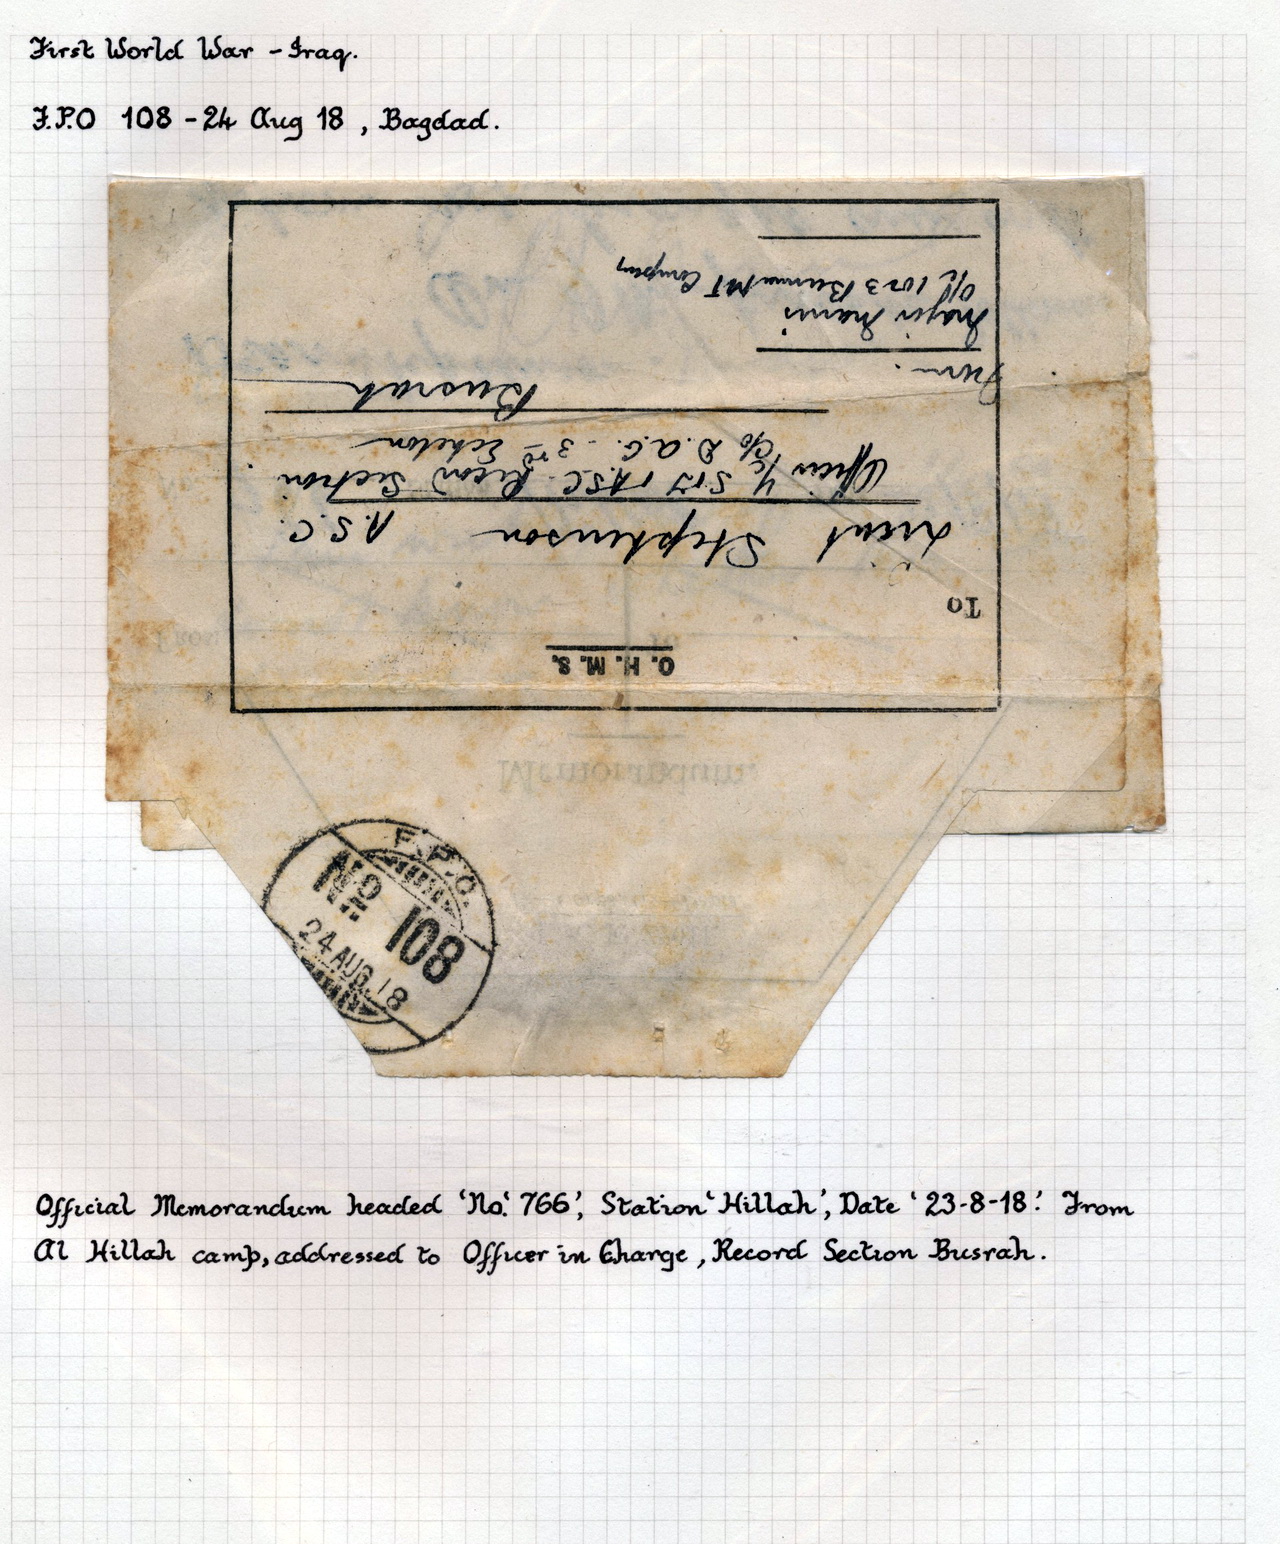 First World War - Iraq.
F.P.O 108 - 24 Aug 18, Bagdad.
O. H. M. S.
To
Lieut Stephenson A.S.C.
Officer i/c S & T A.S.C. Record Section
c/o D.A.G. 3rd Echelon
Busrah
From.
Major
O/C 1023 Burma MT Company
Memorandum.
F.P.O.
No 108
24 AUG. 18
Official Memorandum headed 'No.' 766', Station 'Hillah', Date '23-8-18'. From
Al Hillah camp, addressed to Officer in Charge, Record Section Busrah.